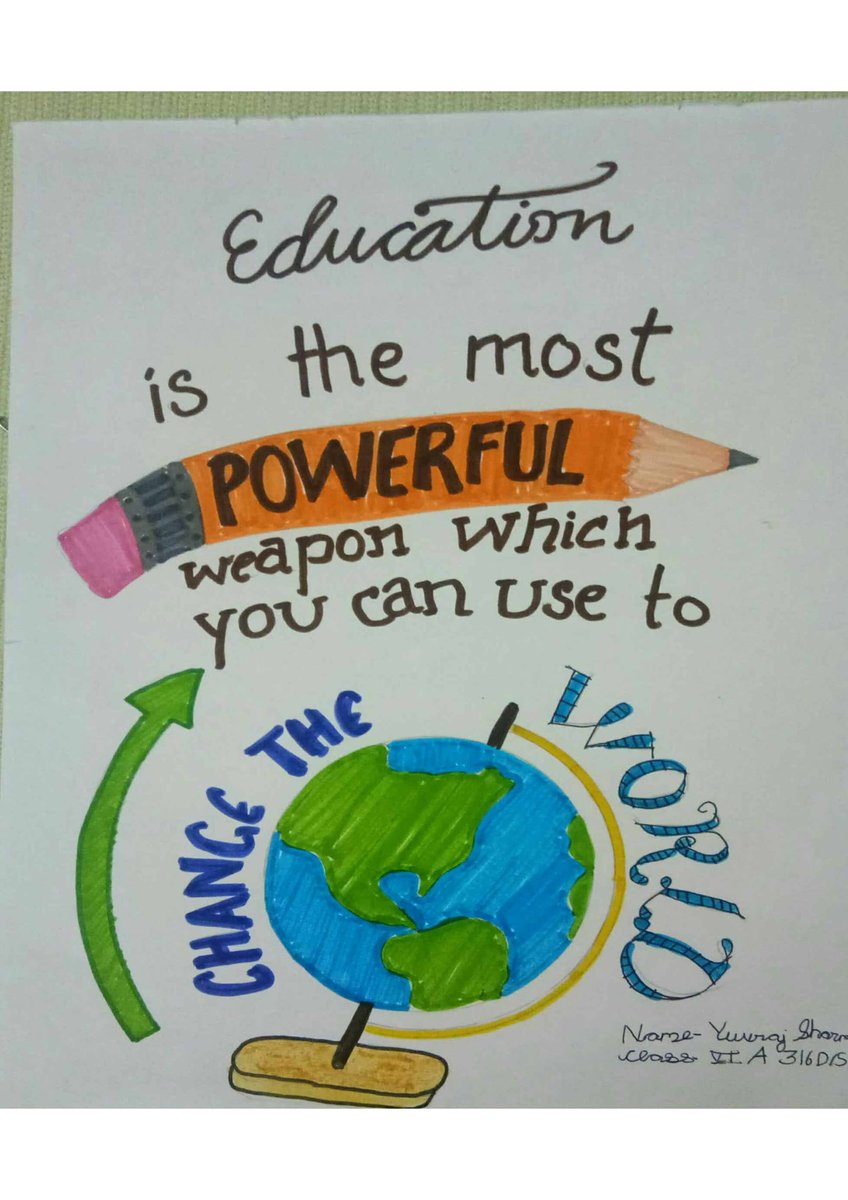 Education
is the most
POWERFUL
weapon which
you can use to
CHANGE THE
WORLD
Name- Yuvraj
Class VI A